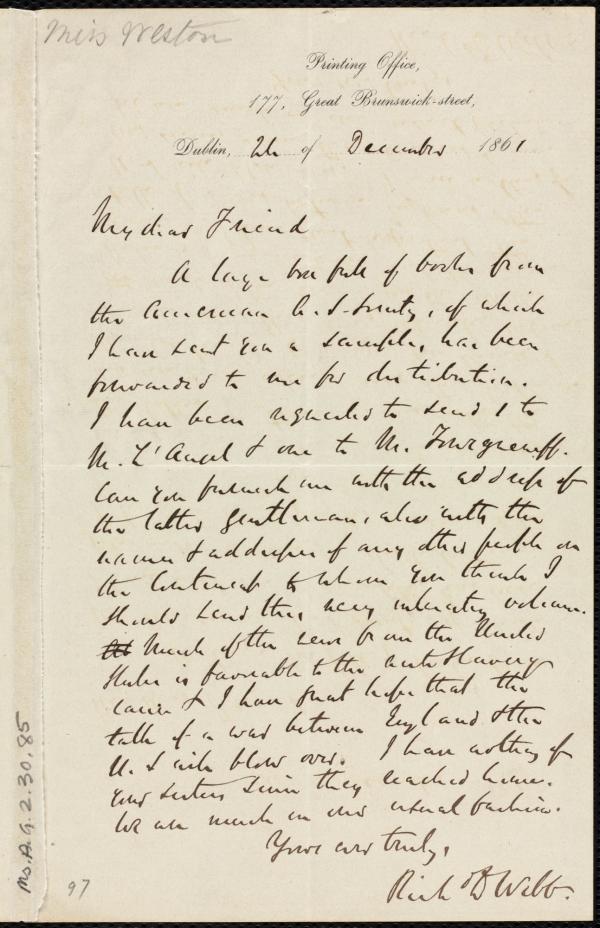 Miss Weston
Printing Office,
177, Great Brunswick-street,
Dublin, 2d of December 1861
My dear Friend
A large box full of books from
the American A. S. Society, of which
I have sent you a sample, has been
forwarded to me for distribution.
I have been requested to send 1 to
M. L'Angel & one to M. Tourgueneff.
Can you furnish me with the address of
the latter gentleman, also with the
names & addresses of any other people on
the Continent to whom you think I
should send this very interesting volume.
Much of the news from the United
States is favorable to the anti Slavery
cause & I have great hope that the
talk of a war between England & the
U. S will blow over. I have nothing of
your sisters since they reached home.
We are much in our usual fashion.
Yours ever truly,
Richd D Webb.
Ms.A.9.2.30.85
97